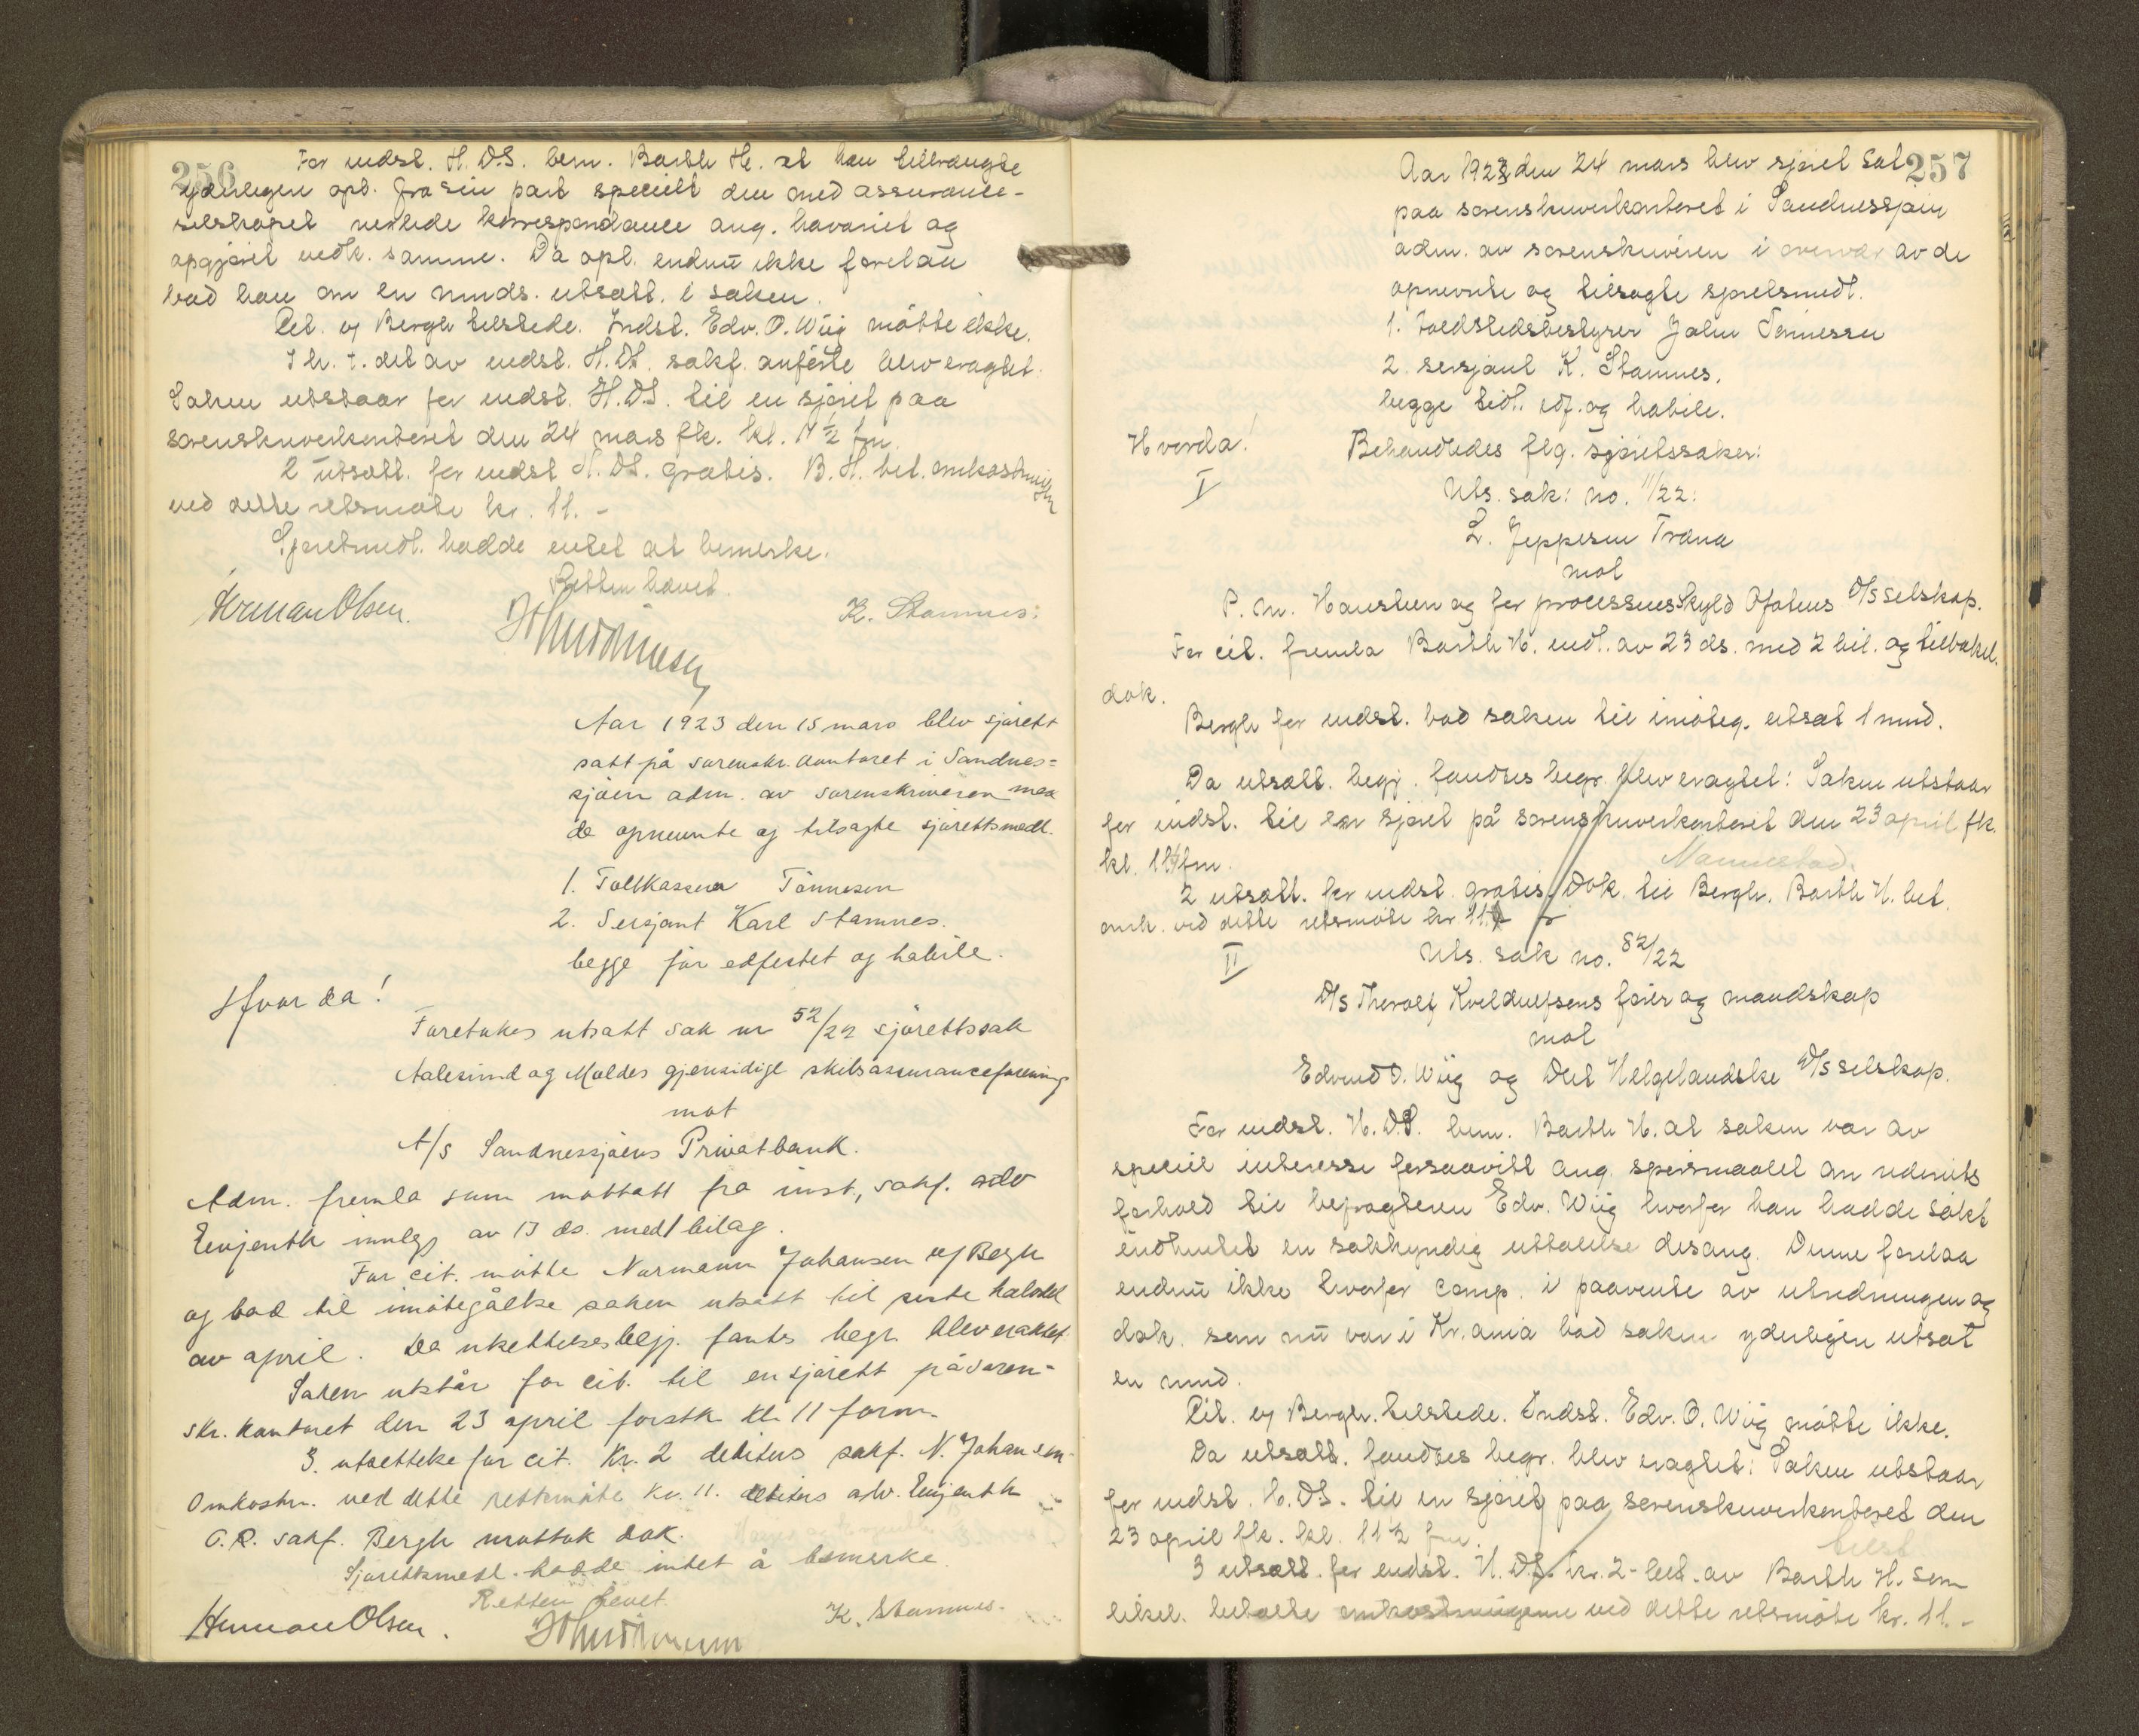 256
For indst. H.D.S. bem. Barth H. at han tiltrængte
yderligere opl. fra sin part specielt den med assurance-
selskapet  korrespondance ang. havariet og
opgjøret vedk. samme. Da opl. endnu ikke forelaa
bad han om en mnds. utsætt. i saken.
Cit. v/ Bergh tilstede. Indst. Edv. O. Wiig møtte ikke.
I h. t. det av indst. H.DS. sakf. anførte blev eragtet:
Saken utstaar for indst. H.D.S. til en sjøret paa
sorenskriverkontoret den 24 mars fk. kl. 11½ fm.
2 utsætt. for indst H.DS. gratis. B.H. bet. omkostningene
ved dette retsmøte kr. 11.-
Sjøretmedl. hadde intet at bemerke.
Retten hævet.
Herman Olsen.
K. Stamnes.
Aar 1923 den 15 mars blev sjørett
satt på sorenskr. kontoret i Sandnes=
sjøen adm. av sorenskriveren med
de opnevnte og tilsagte sjørettsmedl.
1. Tollkasserer Tönnesen
2. Sersjant Karl Stamnes.
begge før edfestet og habile.
Hvorda!
Foretokes utsatt sak nr 52/22 sjørettssak
Aalesund og Moldes gjensidige skibsassuranceforening
mot
A/S Sandnessjøens Privatbank.
Adm. fremla som mottatt fra inst, sakf. adv
Leivjenth innlegg av 13 ds. med 1 bilag.
For cit. møtte Normann Johansen v/ Bergh
og bad til imøtegåelse saken utsatt til siste halvdel
av april. Da utsettelsesbegj. fantes begr. blev eraktet.
Saken utstår for cit. til en sjørett på soren=
skr. kontoret den 23 april førstk kl. 11 form.
3. utsettelse for cit. Kr. 2 debiteres sakf. N. Johansen.
Omkostn. ved dette rettsmøte kr. 11. debiteres adv. Leivjenth
O.R. sakf. Bergh mottok dok.
Sjørettsmedl. hadde intet å bemerke.
Retten hevet.
Herman Olsen.
K. Stamnes.
257
Aar 1923 den 24 mars blev sjøret sat
paa sorenskriverkontoret i Sandnessjøen
adm. av sorenskriveren i overvær av de
opnevnte og tilsagte sjøretsmedl.
1. toldstedsbestyrer John Tønnessen
2. sersjant K. Stamnes.
begge tidl. edf. og habile.
Hvorda!
Behandledes flg. sjøretssaker:
I
Uts. sak: no. 11/22:
L. Jeppesen Træna
mot
P. M. Hansteen og for processens skyld Ofotens D/S selskap.
For cit. fremla Barth H. indl. av 23 ds. med 2 bil. og tilbakel.
dok.
Bergh for indst. bad saken til imøteg. utsat 1 mnd.
Da utsætt. begj. fandtes begr. blev eragtet: Saken utstaar
for indst. til en sjøret på sorenskriverkontoret den 23 april fk.
kl. 11 fm.
2 utsætt. for indst. gratis. Dok. til Bergh. Barth H. bet.
omk. ved dette retsmøte kr. 11.-
II
Uts. sak no. 82/22
D/S Thorolf Kveldulfsens fører og mandskap
mot
Edvard O. Wiig og Det Helgelandske D/S selskap.
For indst. H.D.S. bem. Barth H. at saken var av
speciel interesse forsaavidt ang. spørsmaalet om rederiets
forhold til befragteren Edv. Wiig hvorfor han hadde søkt
indhentet en sakkyndig uttalelse desang. Denne forelaa
endnu ikke hvorfor comp. i paavente av utredningen og
dok. som nu var i Kr.ania bad saken yderligere utsat
en mnd.
Cit. v/ Bergh. tilstede. Indst. Edv. O. Wiig møtte ikke.
Da utsætt. fandtes begr. blev eragtet: Saken utstaar
for indst. H.DS. til en sjøret paa sorenskriverkontoret den
23 april fk. kl. 11½ fm.
3 utsætt. for indst. H.D.S. kr. 2- bet. av Barth H. som
likel. betalte omkostningene ved dette retsmøte kr. 11.-